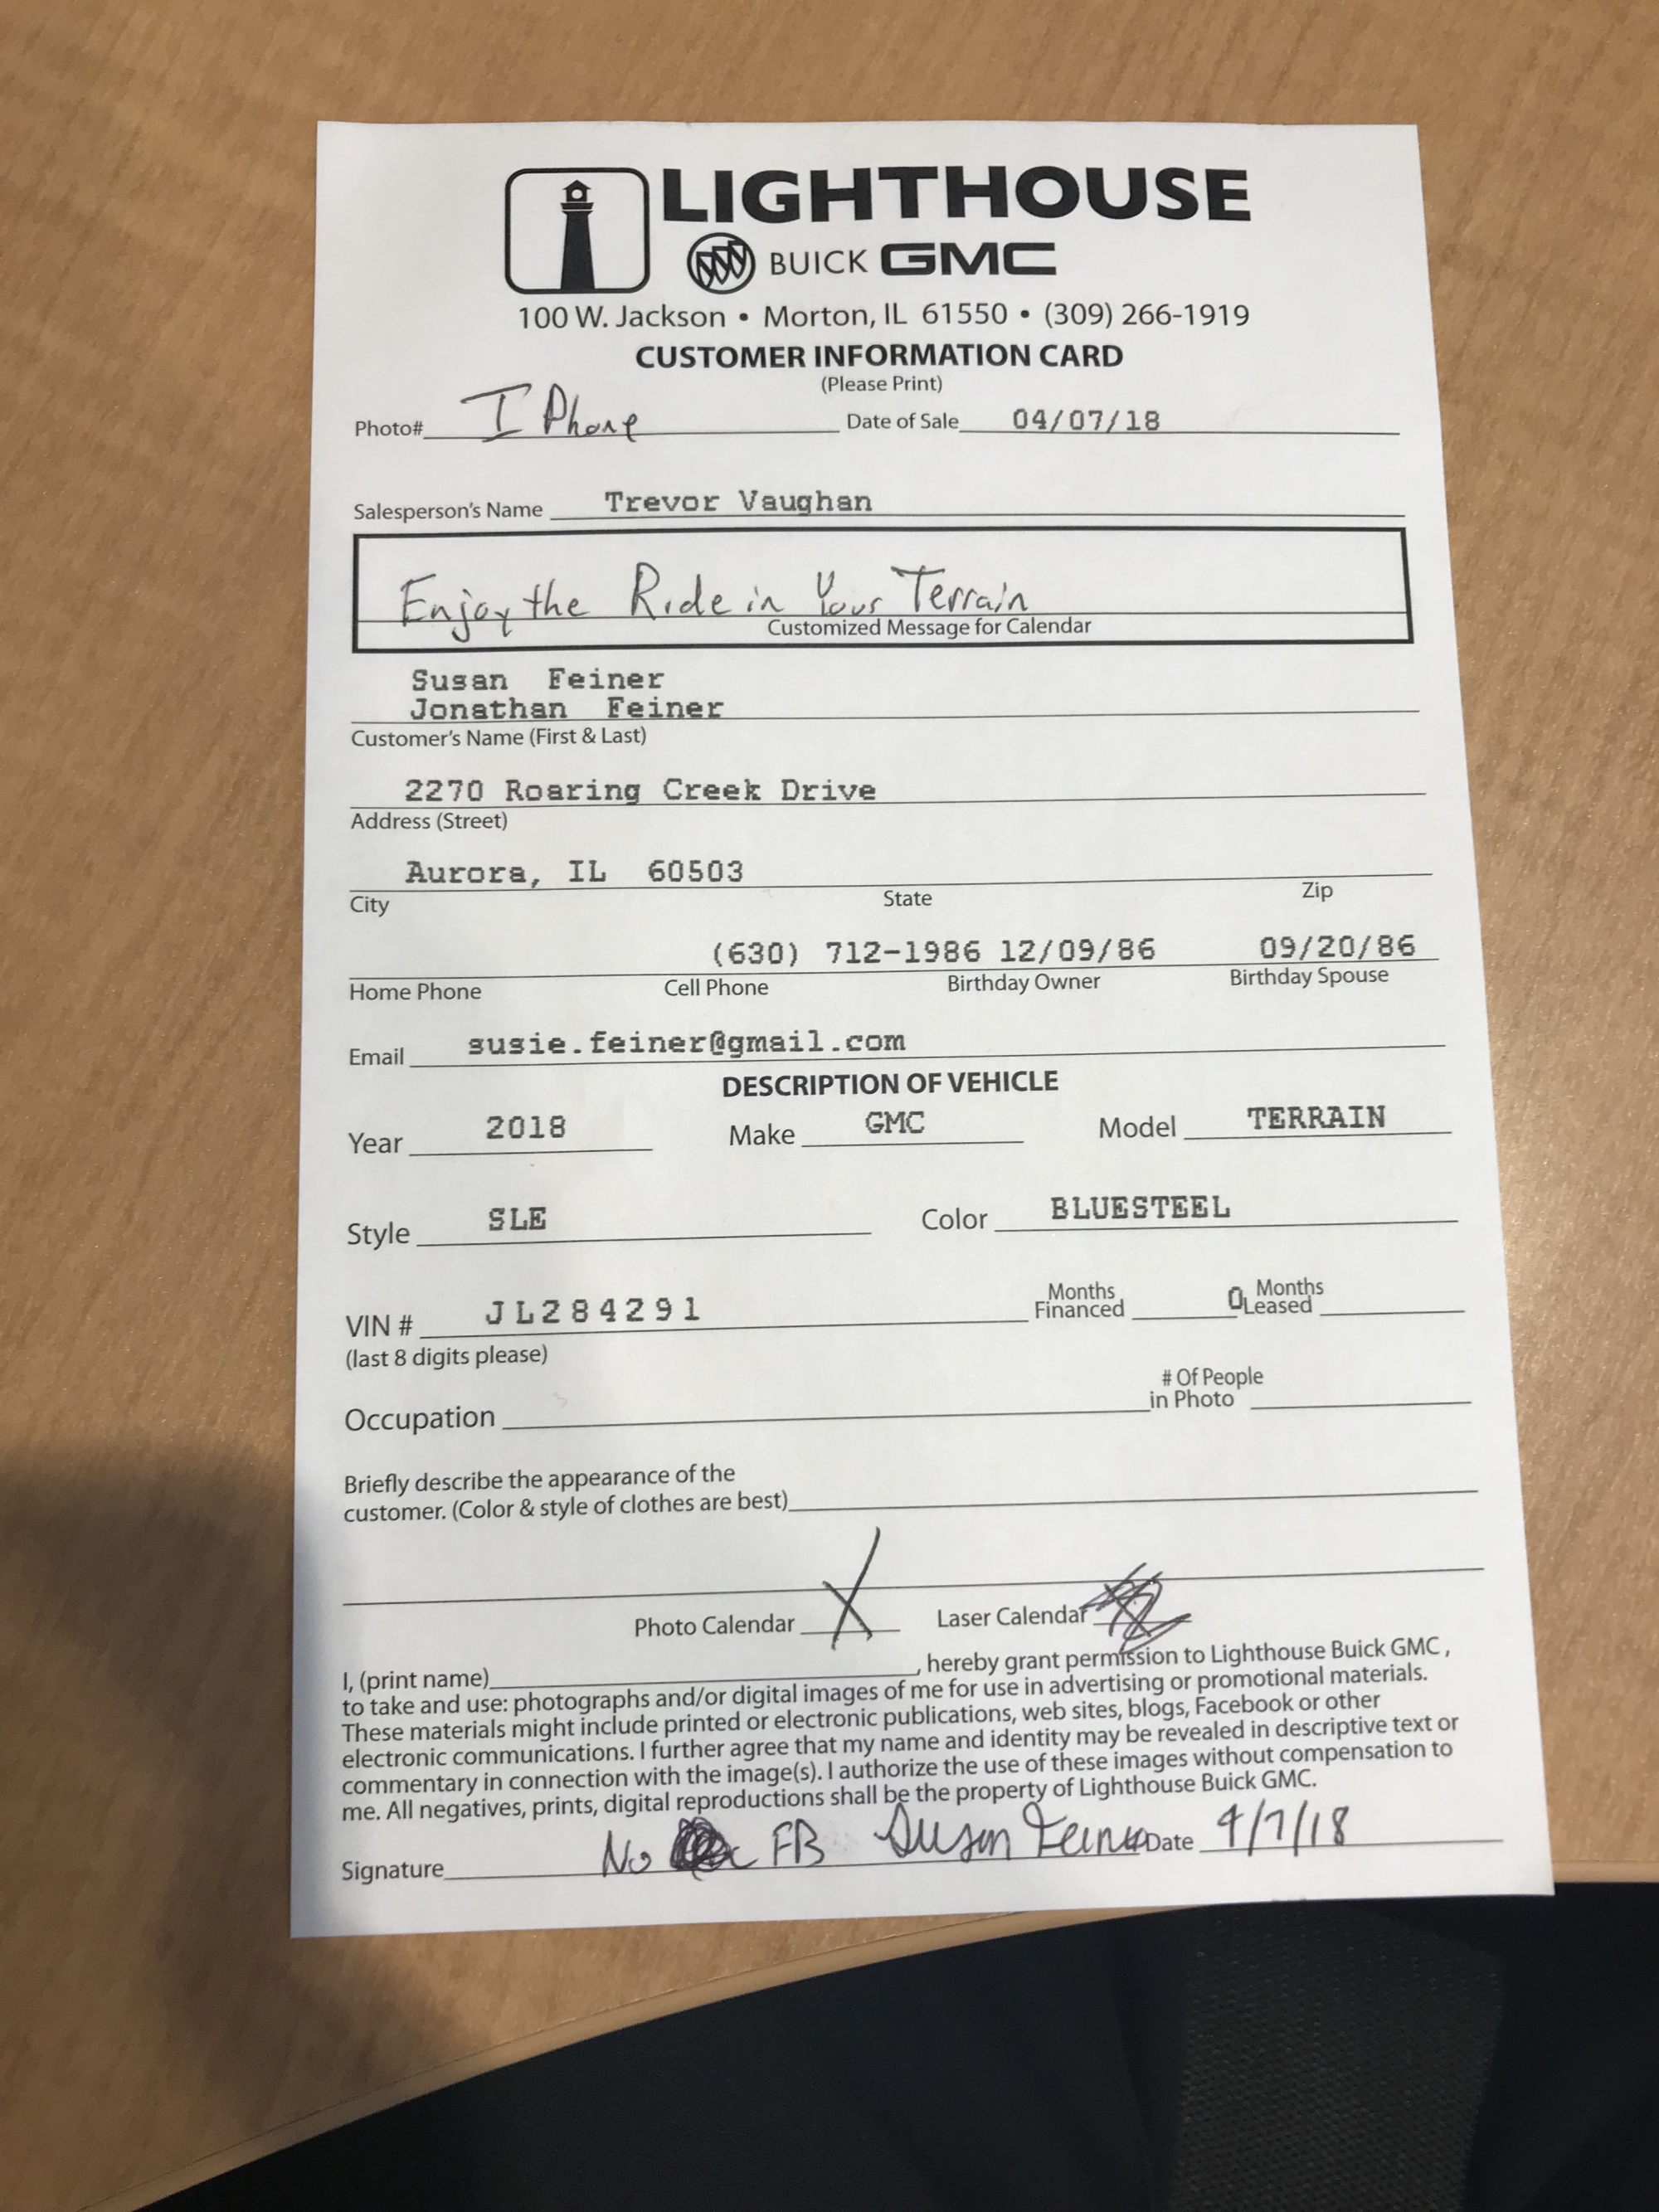 LIGHTHOUSE
BUICK GMC
100 W. Jackson • Morton, IL 61550 • (309) 266-1919
CUSTOMER INFORMATION CARD
(Please Print)
Photo# I Phone Date of Sale 04/07/18
Salesperson's Name Trevor Vaughan
Enjoy the Ride in Your Terrain
Customized Message for Calendar
Susan Feiner
Jonathan Feiner
Customer's Name (First & Last)
2270 Roaring Creek Drive
Address (Street)
Aurora, IL 60503
City State Zip
(630) 712-1986 12/09/86 09/20/86
Home Phone Cell Phone Birthday Owner Birthday Spouse
Email susie.feiner@gmail.com
DESCRIPTION OF VEHICLE
Year 2018 Make GMC Model TERRAIN
Style SLE Color BLUESTEEL
VIN # JL284291 Months Financed 0 Months Leased
(last 8 digits please)
Occupation # Of People in Photo
Briefly describe the appearance of the
customer. (Color & style of clothes are best)
Photo Calendar X Laser Calendar
I, (print name) , hereby grant permission to Lighthouse Buick GMC ,
to take and use: photographs and/or digital images of me for use in advertising or promotional materials.
These materials might include printed or electronic publications, web sites, blogs, Facebook or other
electronic communications. I further agree that my name and identity may be revealed in descriptive text or
commentary in connection with the image(s). I authorize the use of these images without compensation to
me. All negatives, prints, digital reproductions shall be the property of Lighthouse Buick GMC.
Signature No FB Susan Feiner Date 4/7/18